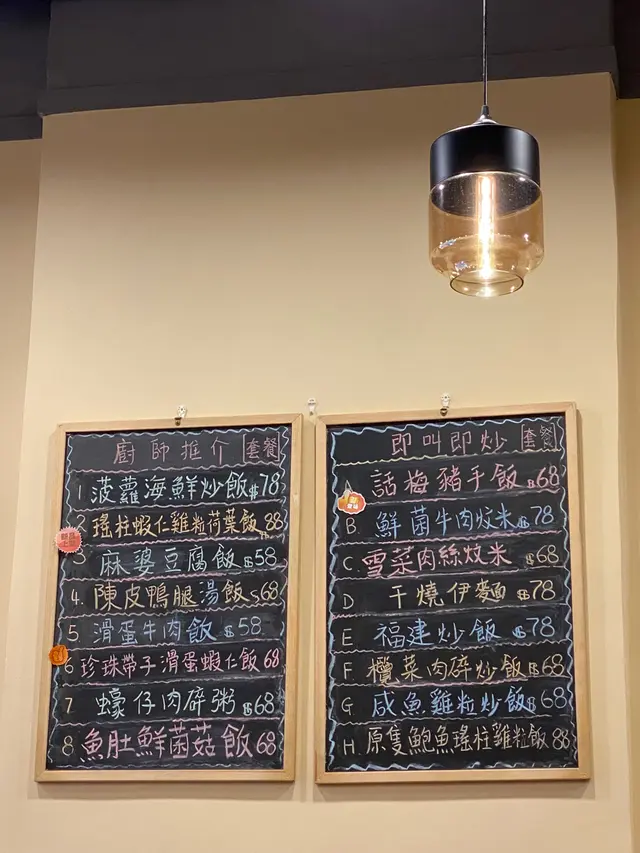 廚師推介 套餐
1 菠蘿海鮮炒飯 $78
2 瑤柱蝦仁雞粒荷葉飯 $88
3 麻婆豆腐飯 $58
4. 陳皮鴨腿湯飯 $68
5 滑蛋牛肉飯 $58
6 珍珠帶子滑蛋蝦仁飯 68
7 蠔仔肉碎粥 $68
8 魚肚鮮菌菇飯 68
即叫即炒 套餐
A 話梅豬手飯 $68
B 鮮菌牛肉炆米 $78
C 雪菜肉絲炆米 $68
D 干燒伊麵 $78
E 福建炒飯 $78
F. 欖菜肉碎炒飯 $68
G 咸魚雞粒炒飯 $68
H. 原隻鮑魚瑤柱雞粒飯 88